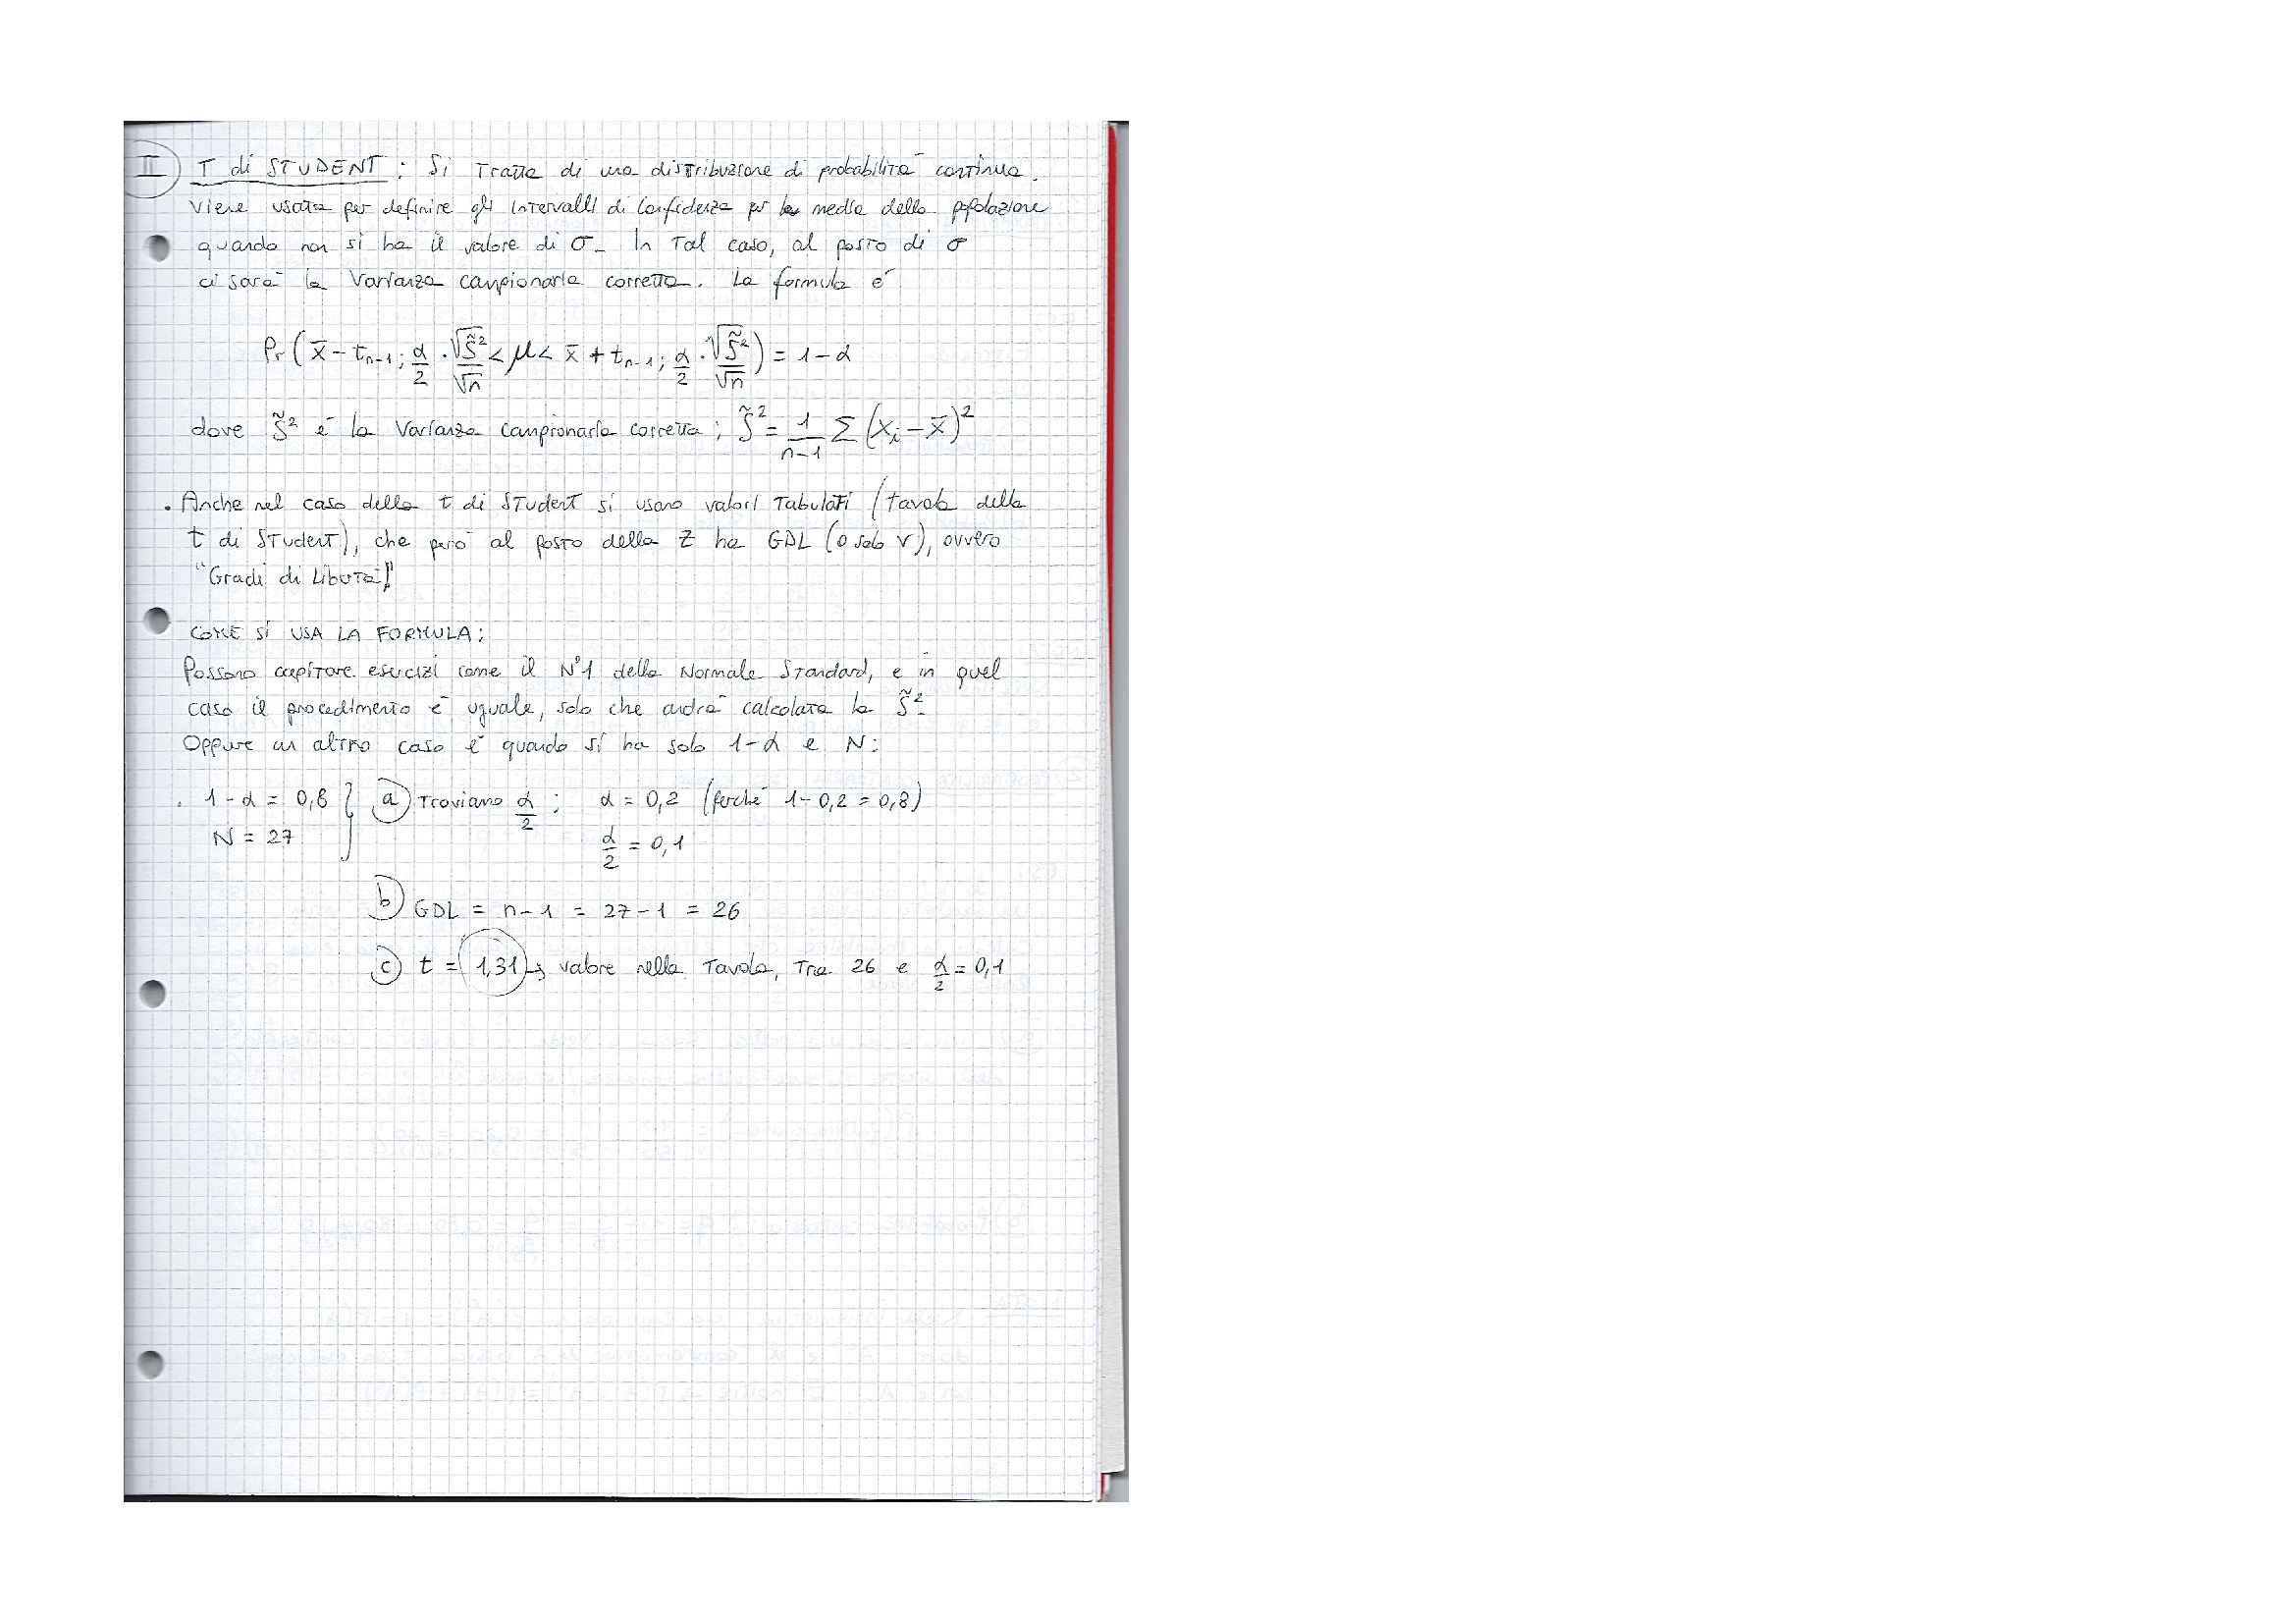 II) T di STUDENT : Si Tratta di una distribuzione di probabilità continua.
Viene usata per definire gli intervalli di confidenza per la media della popolazione
quando non si ha il valore di σ. In tal caso, al posto di σ
ci sarà la Varianza campionaria corretta. La formula è
Pr ( x̄ - t_{n-1; α/2} · √S̃²/√n < μ < x̄ + t_{n-1; α/2} · √S̃²/√n ) = 1-α
dove S̃² è la Varianza campionaria corretta ; S̃² = 1/(n-1) Σ (xᵢ - x̄)²
. Anche nel caso della t di Student si usano valori Tabulati (tavola della
t di Student), che però al posto della Z ha GDL (o solo v), ovvero
"Gradi di Libertà!"
COME SI USA LA FORMULA :
Possono capitare esercizi come il N°1 della Normale Standard, e in quel
caso il procedimento è uguale, solo che andrà calcolata la S̃².
Oppure un altro caso è quando si ha solo 1-α e N :
. 1-α = 0,8 } a) Troviamo α/2 ; α = 0,2 (perché 1-0,2 = 0,8)
N = 27 α/2 = 0,1
b) GDL = n-1 = 27-1 = 26
c) t = 1,31 → valore nella Tavola, Tra 26 e α/2 = 0,1